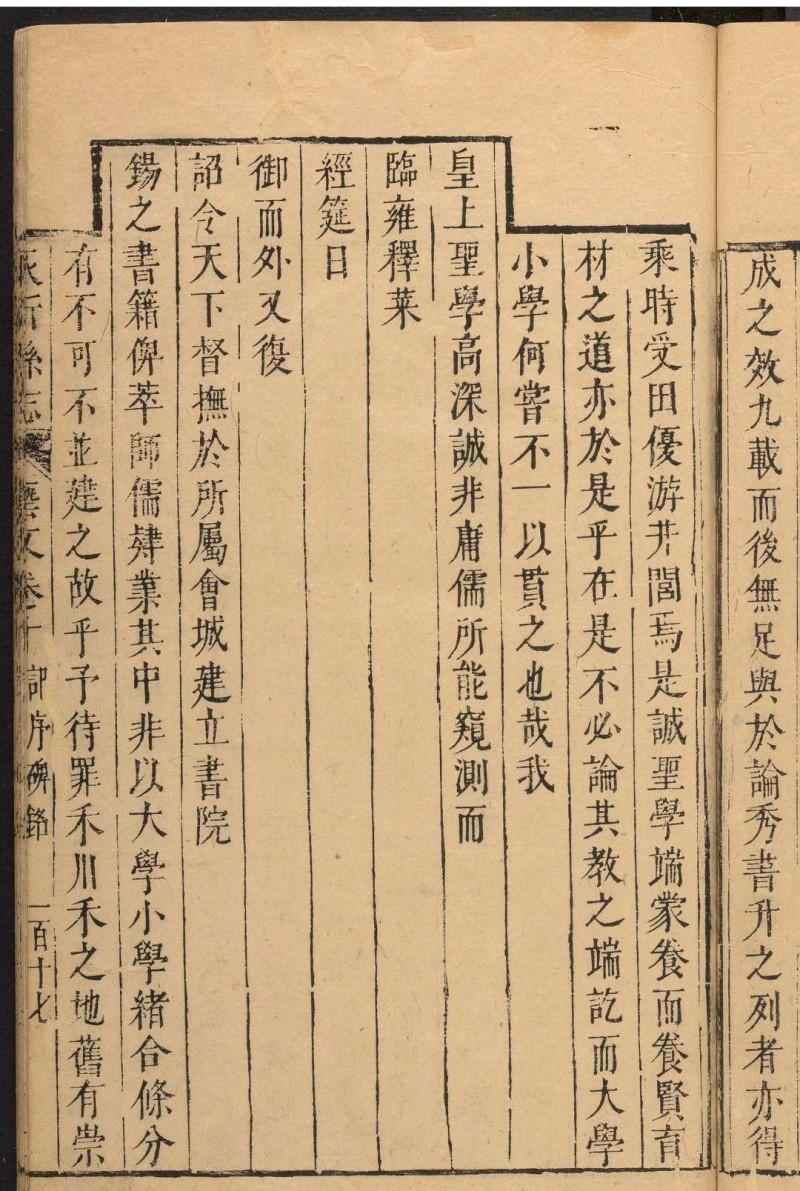 成之效九載而後無足與於論秀書升之列者亦得
乘時受田優游井閭焉是誠聖學端蒙養而養賢育
材之道亦於是乎在是不必論其教之端訖而大學
小學何嘗不一以貫之也哉我
皇上聖學高深誠非庸儒所能窺測而
臨雍釋菜
經筵日
御而外又復
詔令天下督撫於所屬會城建立書院
錫之書籍俾萃師儒肄業其中非以大學小學緒合條分
有不可不並建之故乎予待罪禾川禾之地舊有崇
永新縣志 藝文卷十 記序碑銘 一百十七